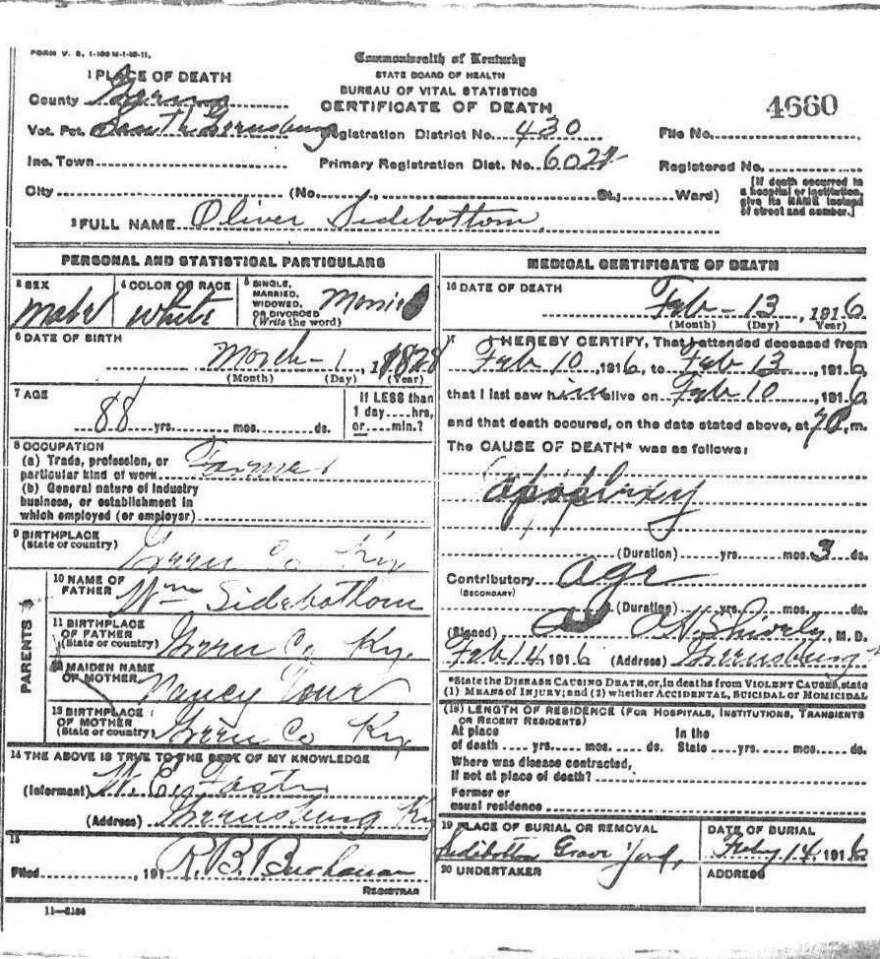 FORM V. S. 1-
Commonwealth of Kentucky
STATE BOARD OF HEALTH
BUREAU OF VITAL STATISTICS
CERTIFICATE OF DEATH
4660
1 PLACE OF DEATH
County Green
Vot. Pct. South Greensburg
Registration District No. 430
File No.
Inc. Town
Primary Registration Dist. No.
Registered No.
City (No. , St., Ward)
[If death occurred in a hospital or institution, give its NAME instead of street and number.]
2 FULL NAME Oliver Sidebottom
PERSONAL AND STATISTICAL PARTICULARS
3 SEX
Male
4 COLOR OR RACE
White
5 SINGLE, MARRIED, WIDOWED, OR DIVORCED
(Write the word)
6 DATE OF BIRTH
March 1, 1828
(Month) (Day) (Year)
7 AGE
88 yrs. mos. ds.
If LESS than
1 day hrs,
or min.?
8 OCCUPATION
(a) Trade, profession, or
particular kind of work Farmer
(b) General nature of industry
business, or establishment in
which employed (or employer)
9 BIRTHPLACE
(State or country) Green Co Ky
PARENTS
10 NAME OF
FATHER Wm Sidebottom
11 BIRTHPLACE
OF FATHER
(State or country) Green Co Ky.
12 MAIDEN NAME
OF MOTHER Nancy
13 BIRTHPLACE
OF MOTHER
(State or country) Green Co Ky
14 THE ABOVE IS TRUE TO THE BEST OF MY KNOWLEDGE
(Informant) W. E.
(Address) Greensburg Ky
15
Filed , 191 R. B. Buchanan
REGISTRAR
11—
MEDICAL CERTIFICATE OF DEATH
16 DATE OF DEATH
Feb - 13, 1916
(Month) (Day) Year)
17 I HEREBY CERTIFY, That I attended deceased from
Feb 10, 1916, to Feb 13, 1916,
that I last saw him alive on Feb 10, 1916,
and that death occured, on the date stated above, at m.
The CAUSE OF DEATH* was as follows:
apoplexy
(Duration) yrs. mos. 3 ds.
Contributory age
(SECONDARY)
(Duration) yrs. mos. ds.
(Signed) Shively, M. D.
Feb 14, 1916 (Address) Greensburg
*State the DISEASE CAUSING DEATH, or, in deaths from VIOLENT CAUSES, state
(1) MEANS OF INJURY; and (2) whether ACCIDENTAL, SUICIDAL or HOMICIDAL
(18) LENGTH OF RESIDENCE (FOR HOSPITALS, INSTITUTIONS, TRANSIENTS
OR RECENT RESIDENTS)
At place In the
of death yrs. mos. ds. State yrs. mos. ds.
Where was disease contracted,
If not at place of death?
Former or
usual residence
19 PLACE OF BURIAL OR REMOVAL
Sidebottom Grave Yard,
DATE OF BURIAL
14, 1916
20 UNDERTAKER
ADDRESS